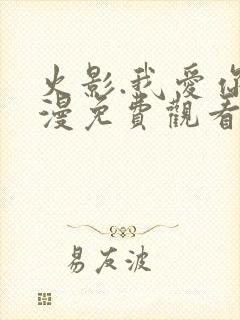 火影.我愛你
漫免費觀看
易友波